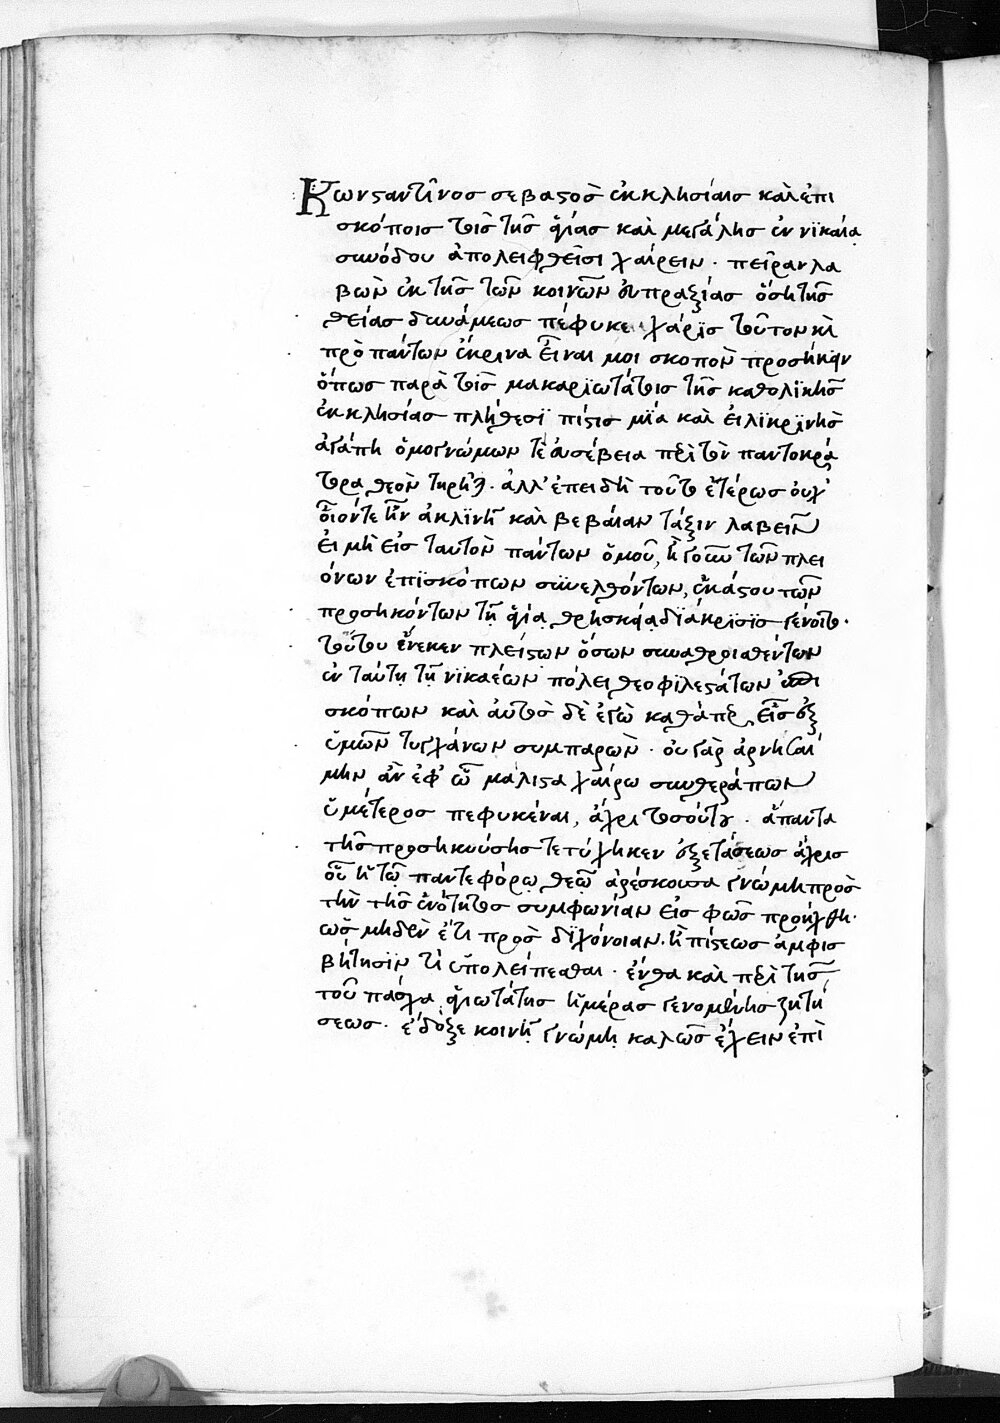 Κωνσταντῖνος σεβαστὸς ἐκκλησίαις καὶ ἐπι
σκόποις τοῖς τῆς ἁγίας καὶ μεγάλης ἐν νϊκαίᾳ
συνόδου ἀπολειφθεῖσι χαίρειν. πεῖραν λα
βὼν ἐκ τῆς τῶν κοινῶν εὐπραξίας ὅση τῆς
θείας δυνάμεως πέφυκε χάρϊς τοῦτον καὶ
πρὸ πάντων ἔκρινα εἶναί μοι σκοπὸν προσήκειν
ὅπως παρὰ τοῖς μακαρϊωτάτοις τῆς καθολϊκῆς
ἐκκλησίας πλήθεσϊ πίστις μϊα καὶ εἰλϊκρϊνὴς
ἀγάπη ὁμογνώμων τὲ εὐσέβεια περὶ τὸν παντοκρά
τορα θεὸν τηρῆται. ἀλλ' ἐπειδὴ τοῦτο ἑτέρως οὐχ'
οἷόντε ἦν ἀκλϊνῆ καὶ βεβαίαν τάξιν λαβεῖν
εἰ μὴ εἰς ταυτὸν πάντων ὁμοῦ, ἢ γοῦν τῶν πλει
όνων ἐπϊσκόπων συνελθόντων, ἑκάστου τῶν
προσηκόντων τῇ ἁγίᾳ θρησκείᾳ δϊάκρϊσϊς γένοιτο.
τούτου ἕνεκεν πλείστων ὅσων συναθροισθέντων
ἐν ταύτῃ τῇ νϊκαέων πόλει θεοφϊλεστάτων ἐπι
σκόπων καὶ αὐτὸς δὲ ἐγὼ καθάπερ εἷς ἐξ
ὑμῶν τυγχάνων συμπαρὼν. οὐ γὰρ ἀρνησαί
μην ἂν ἐφ' ᾧ μάλιστα χαίρω συνθεράπων
ὑμέτερος πεφυκέναι, ἄχρι τοσούτου. ἅπαντα
τῆς προσηκούσης τετύχηκεν ἐξετάσεως ἄχρις
οὗ ἡ τῷ παντεφόρῳ θεῷ ἀρέσκουσα γνώμη πρὸς
τὴν τῆς ἑνότητος συμφωνίαν εἰς φῶς προήχθη.
ὡς μηδὲν ἔτι πρὸς δϊχόνοιαν. ἢ πίστεως ἀμφισ
βήτησϊν τὶ ὑπολείπεσθαι. ἔνθα καὶ περὶ τῆς
τοῦ πάσχα ἁγιωτάτης ἡμέρας γενομένης ζητή
σεως. ἔδοξε κοινῇ γνώμῃ καλῶς ἔχειν ἐπὶ